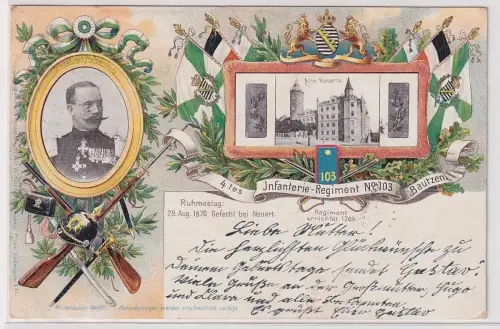 Alte Kaserne
103
4tes Infanterie-Regiment No. 103 Bautzen
Ruhmestag:
29. Aug. 1870. Gefecht bei Nouart.
Regiment
errichtet 1709.
Liebe Mutter!
Die herzlichsten Glückwünsche zu
deinem Geburtstage sendet Gustav.
Viele Grüße an der Großmutter, Hugo
und Clara und alle Bekannten.
Es grüßt Euer Gustav